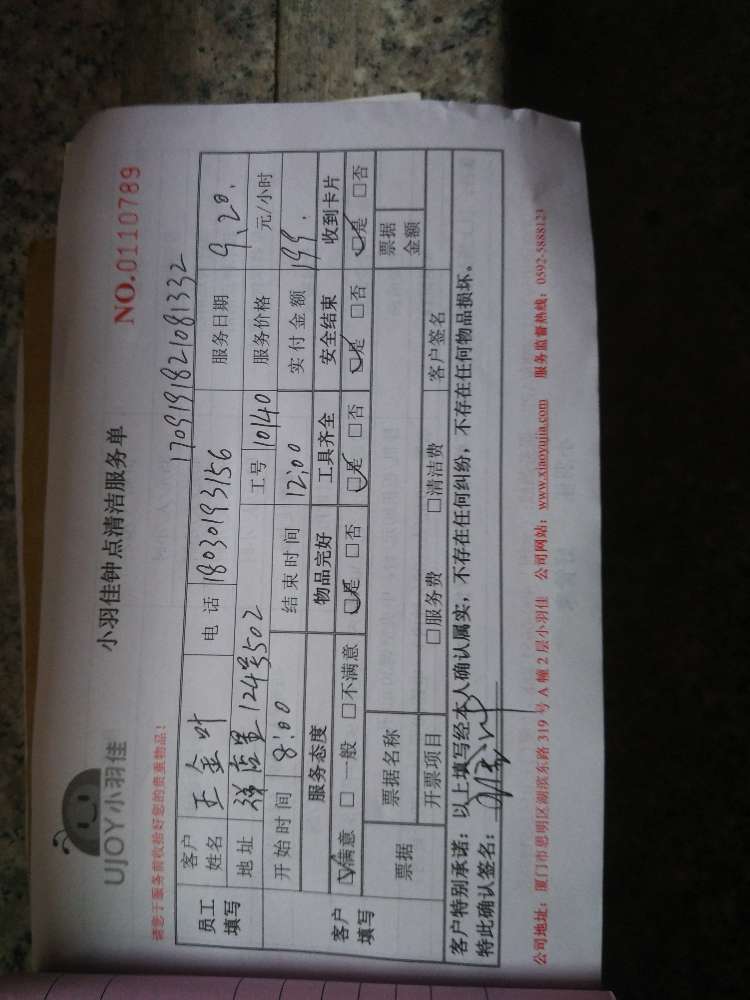 UJOY小羽佳
小羽佳钟点清洁服务单
NO.0110789
请您于服务前收拾好您的贵重物品!
1709191821081332
员工填写 客户姓名 王金叶 电话 18030193156 服务日期 9.20.
地址 124号502 工号 10140 服务价格 元/小时
开始时间 8:00 结束时间 12:00 实付金额 199.
客户填写 服务态度 物品完好 工具齐全 安全结束 收到卡片
☑满意 □一般 □不满意 ☑是 □否 ☑是 □否 ☑是 □否 ☑是 □否
票据 票据名称 票据金额
开票项目 □服务费 □清洁费 客户签名
客户特别承诺:以上填写经本人确认属实,不存在任何纠纷,不存在任何物品损坏。
特此确认签名:
公司地址:厦门市思明区湖滨东路 319 号 A 幢 2 层小羽佳 公司网站:www.xiaoyujia.com 服务监督热线:0592-5888123